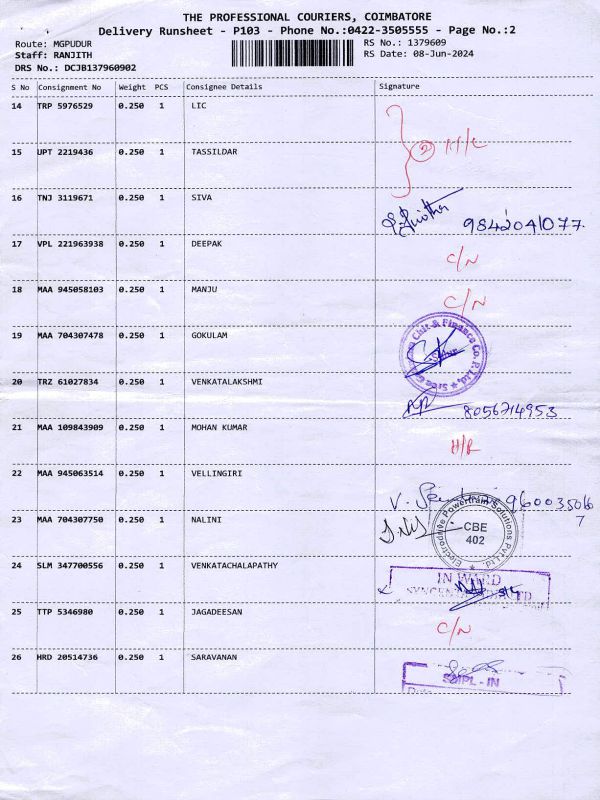 THE PROFESSIONAL COURIERS, COIMBATORE
Delivery Runsheet - P103 - Phone No.:0422-3505555 - Page No.:2
Route: MGPUDUR
RS No.: 1379609
Staff: RANJITH
RS Date: 08-Jun-2024
DRS No.: DCJB137960902
S No Consignment No Weight PCS Consignee Details Signature
14 TRP 5976529 0.250 1 LIC
15 UPT 2219436 0.250 1 TASSILDAR
16 TNJ 3119671 0.250 1 SIVA 9842041077.
17 VPL 221963938 0.250 1 DEEPAK C/N
18 MAA 945058103 0.250 1 MANJU C/N
19 MAA 704307478 0.250 1 GOKULAM Chit & Finance Co. P. Ltd.
20 TRZ 61027834 0.250 1 VENKATALAKSHMI 8056714953
21 MAA 109843909 0.250 1 MOHAN KUMAR
22 MAA 945063514 0.250 1 VELLINGIRI V.
23 MAA 704307750 0.250 1 NALINI Electrodrive Powertrain Solutions Pvt Ltd. CBE 402
24 SLM 347700556 0.250 1 VENKATACHALAPATHY IN WARD
25 TTP 5346980 0.250 1 JAGADEESAN C/N
26 HRD 20514736 0.250 1 SARAVANAN - IN